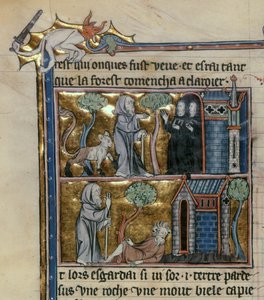 rest qui onques fust veue · et errai tant
que la forest comencha a claroier ·
t lors esgardai si vi sor · i · tertre parde
sus vne roche vne mout biele capie